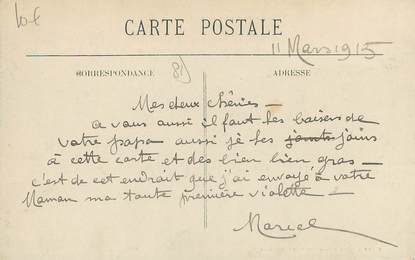 10€
CARTE POSTALE
11 Mars 1915
CORRESPONDANCE
81)
ADRESSE
Mes deux chéries –
a vous aussi il faut les baisers de
votre papa aussi je les joints joins
à cette carte et des bien bien gras –
c'est de cet endroit que j'ai envoyé à votre
Maman ma toute première violette –
Marcel